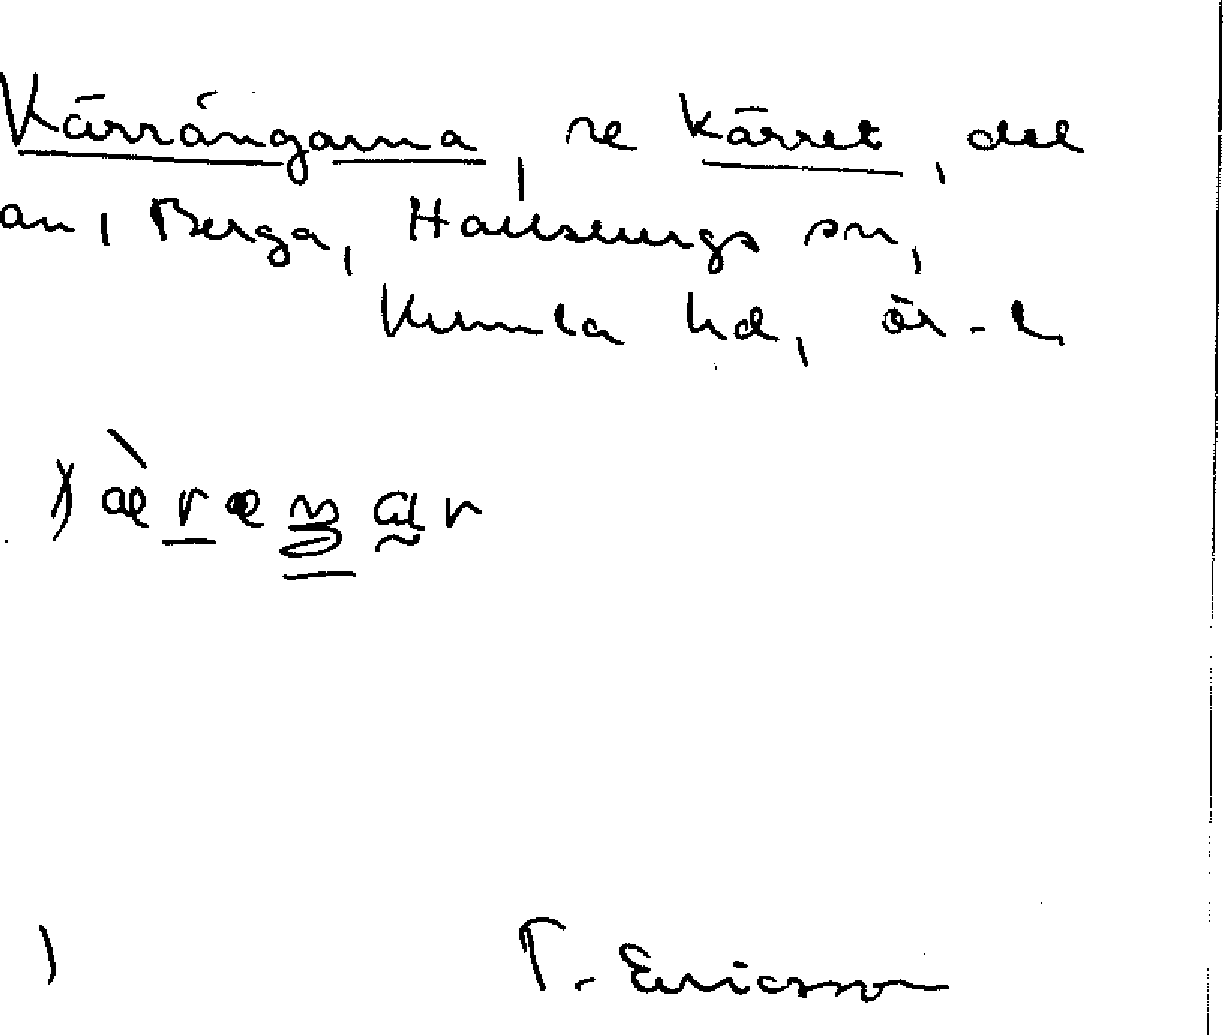 Kärrängarna, se Kärret, del
an, Berga, Hallsbergs sn,
Kumla hd, ör-l
T. Ericsson